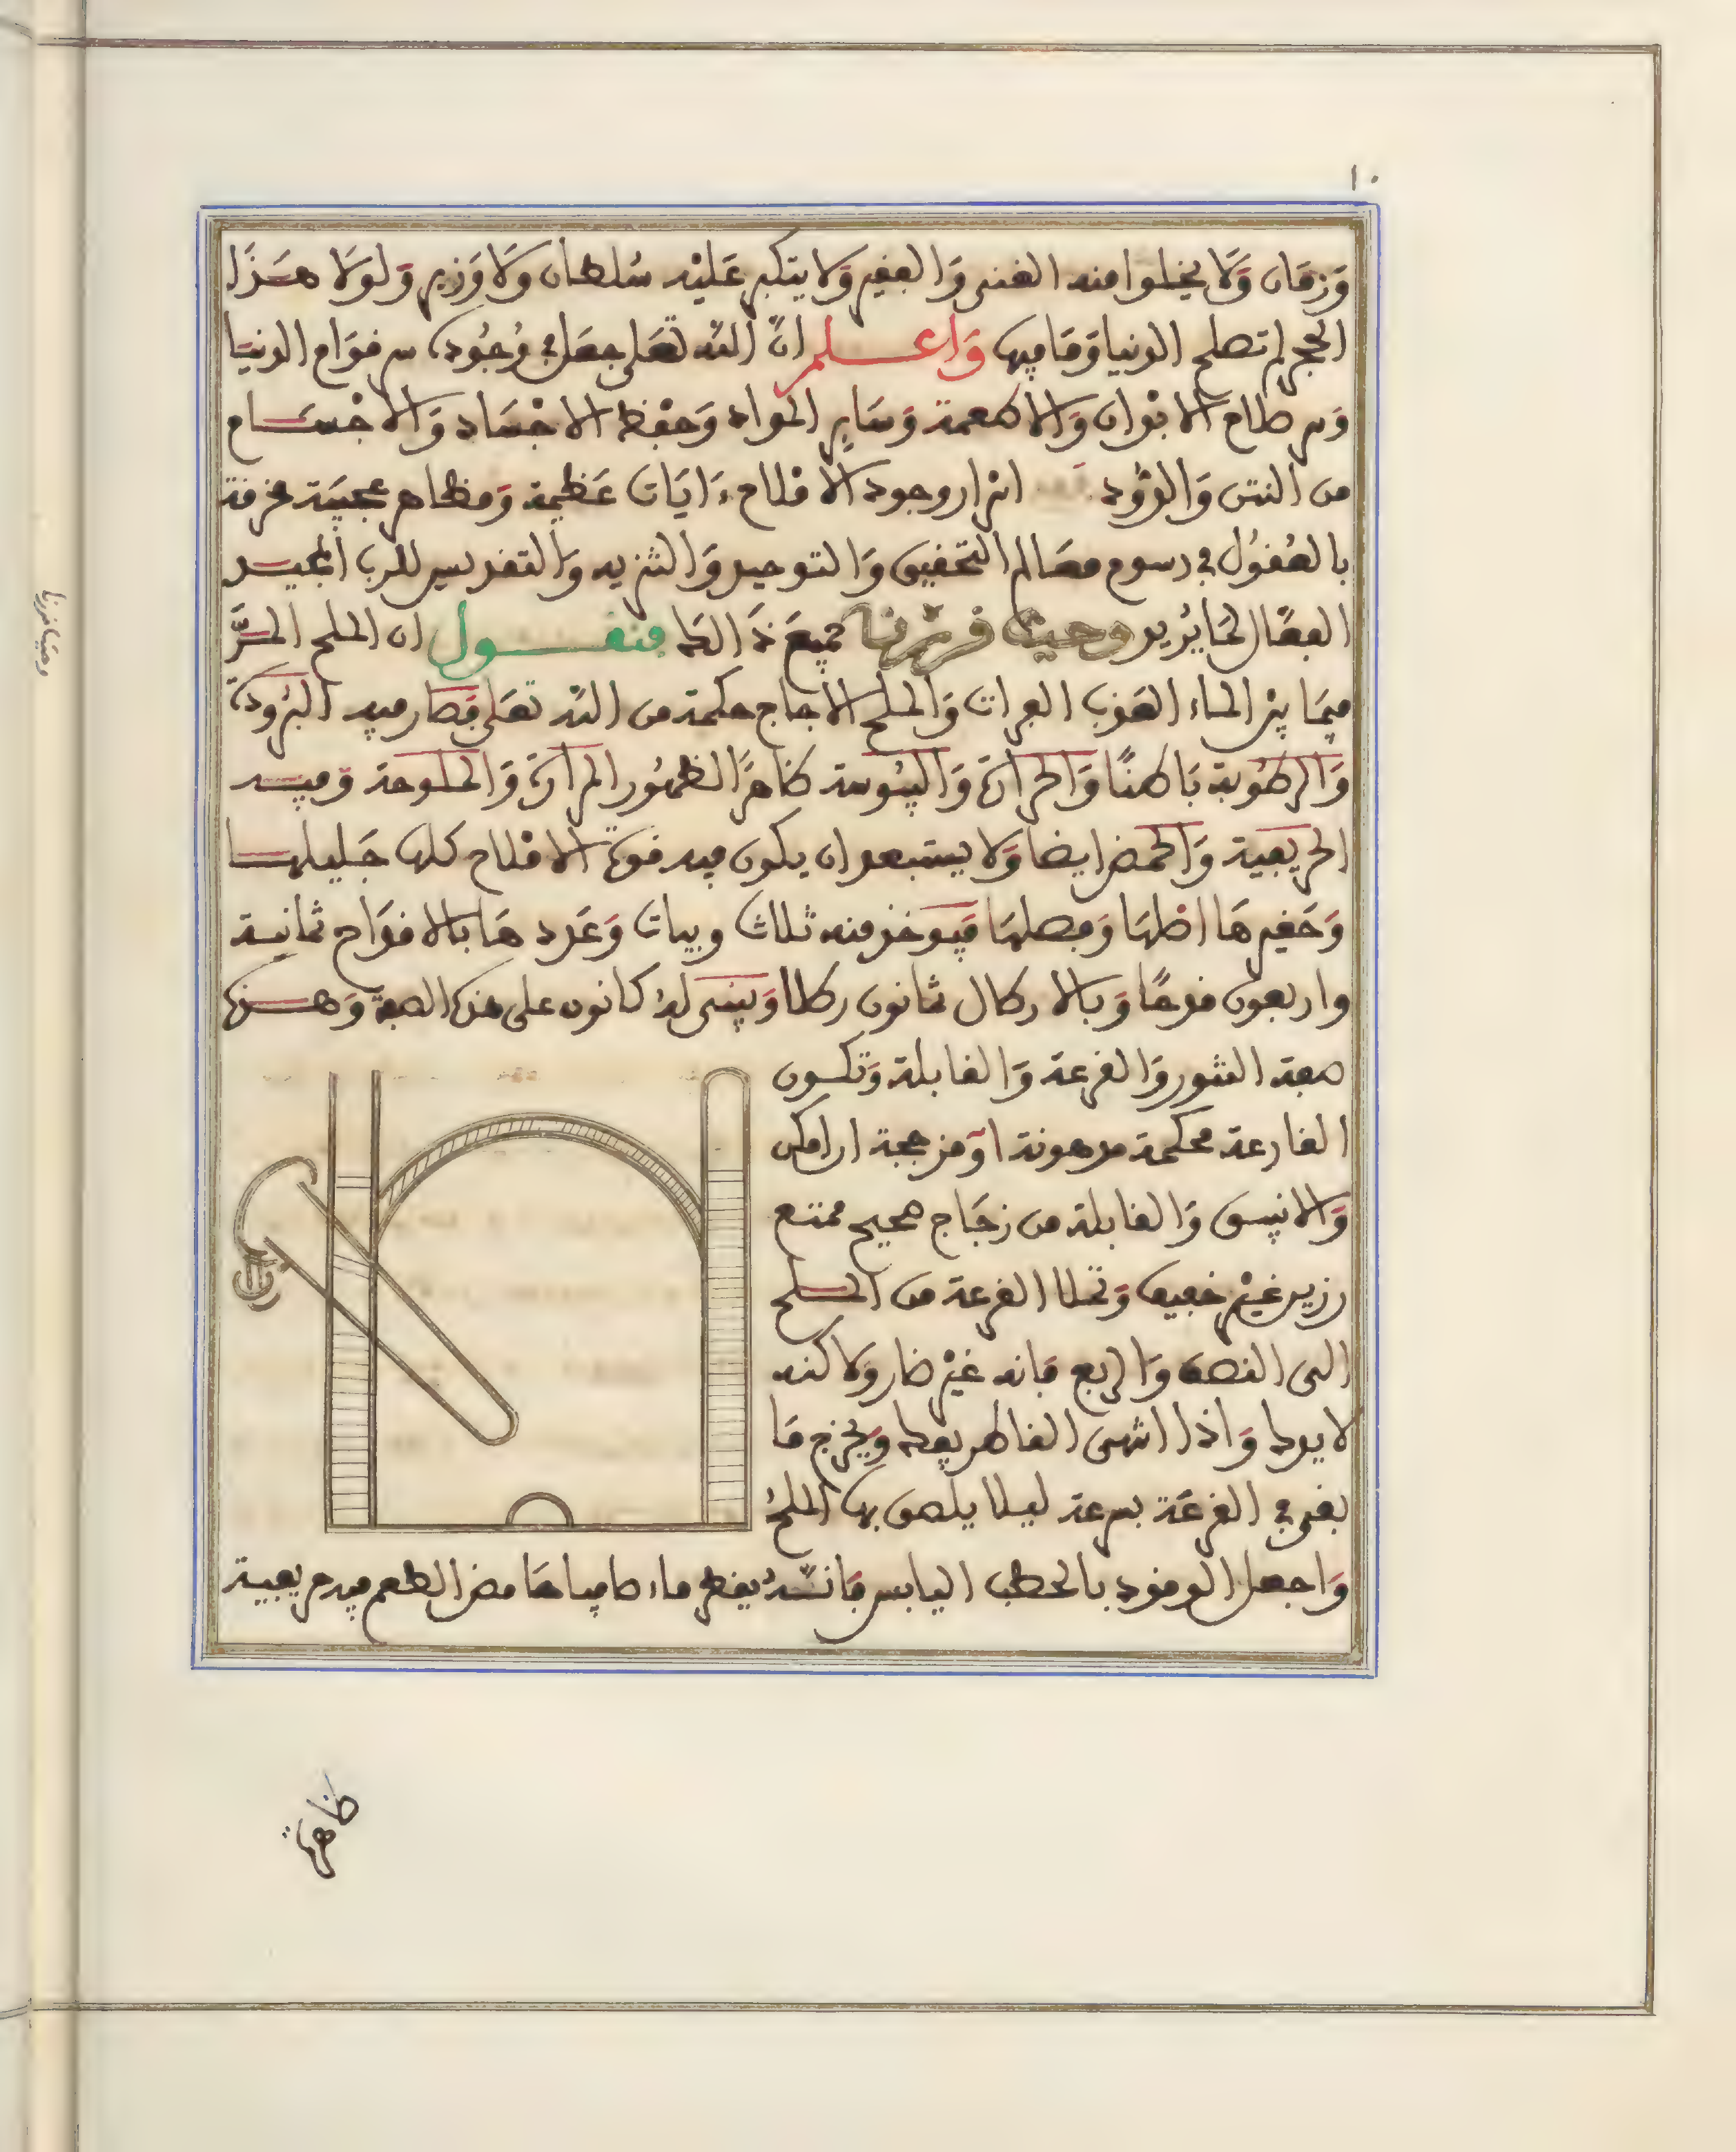 ١٠
وَزمَان وَلا يخلوا منه الغنى وَالفقير وَلا يتكبر عَليْه سُلطان وَلا وَزير وَلولا هَـذَا
الحجر لم تصلح الدنيا وَمَا فيها وَاعـلـم انّ اللّه تعَلى جعَل في وُجُودہ سر قوَام الدنيَا
وَسر صلاح الابْدان وَالاطعمة وَسَايرِ المواد وَحفْظ الاجْسَاد وَالاجْسَـام
من النتن وَالدّود اسرار وجود الاملاح ءَايَات عَظيمة وَمظاهر عجيبَة محدقة
بالعُقوُل في رسوم معَالم التحقيق وَالتوحيد وَالتنزيه وَالتقديس للرب المجيـد
الفعَّال لمَا يُريد وحيث قررنا جميعَ ذَالك فنقـــول ان الملح المـرَّ
فيمَا بيْن الماء العَذب الفرات وَالملح الاجاج حكمة من اللّه تعَلى فصَار فيه البُرُودَة
وَالرطُوبة بَاطنًا وَالحرارَة وَاليبُوسة ظاهرًا لظهُور المرارَة وَالملوحة وَفيـه
الحريفية وَالحمض ايضا وَلا يستبعد ان يكون فيه قوة الاملاح كلها جَليلهـا
وَحَقيرهَا اصْلهَا وَفصلهَا فَيـوخذ منه ثلاث ويبات وَعَددهَا بالاقدَاح ثمانيـة
واربعون قدحًا وَبالارطال ثمانون رطلا وَيبنـى لهُ كانون على هذہ الصفة وَهـذہ
صفة التنور وَالقرعة وَالقابلة وَتكـون
القارعة محكمة مدهونة اوَ مزججة ان امكن
وَالانبيق وَالقابلة من زجَاج صحيح ممتنع
رزين غيْر خفيف وَتملا القرعة من الملـح
الى النصف وَالربع فانه غيْر ضار وَلاكنه
لا يودا وَاذا انتهى القاطر يفك وَيخرج مَا
بقى في القرعَة بسرعة ليلا يلصق بها الملحُ
وَاجعل الوقود بالحطب اليابس فانـه يقطر ماء صافيا حَامض الطعم فيه حريفية
ظاهرة
وحيث قررنا